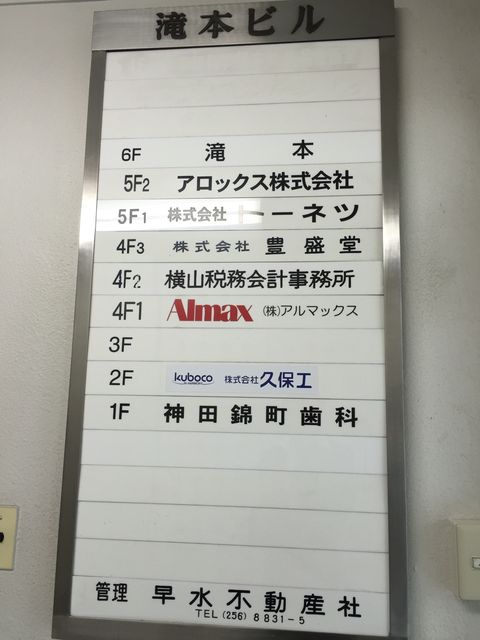 滝本ビル
6F 滝本
5F2 アロックス株式会社
5F1 株式会社 トーネツ
4F3 株式会社 豊盛堂
4F2 横山税務会計事務所
4F1 Almax (株)アルマックス
3F
2F kuboco 株式会社 久保工
1F 神田錦町歯科
管理 早水不動産社
TEL (256) 8831-5